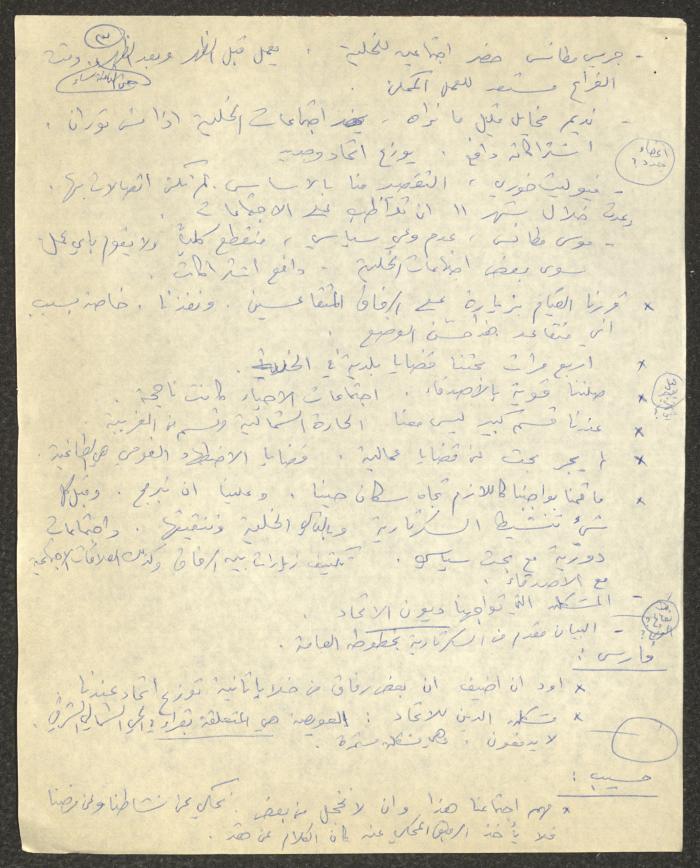 ٣
- جريس مطانس حضر اجتماعين للخلية . يعمل قبل الظهر وبعد الظهر . وقت
الفراغ مستعد للعمل الممكن .
- نديم مخايل قليل ما نراه ، يحضر اجتماعات الخلية اذا مش توران .
اشتراكاته دافع . يوزع اتحاد وحده
اعضاء جدد ؟
- فيوليت خوري ، التقصير منا بالاساس . لم تكن اتصالات بها .
وعدت خلال شهر ١١ ان تواظب على الاجتماعات .
- موسى مطانس ، عدم وعي سياسي ، منقطع كلياً ولا يقوم باي عمل
سوى بعض اجتماعات الخلية . دافع اشتراكات .
× قررنا القيام بزيارة على الرفاق المتقاعسين . ونفذنا . خاصة بسبب
اني متقاعد هذا حسّن الوضع .
× اربع مرات بحثنا قضايا بلدية في
× صلتنا قوية بالاصدقاء . اجتماعات الاحياء كانت ناجحة .
× عندنا قسم كبير ليس معنا الحارة الشمالية وقسم من الغربية .
× لم يجر بحث في قضايا عمالية . قضايا الاضطهاد القومي هي الطاغية .
× ما قمنا بواجبنا كاللازم تجاه سكان حينا . وعلينا ان نبرمج . وقبل كل
شيء تنشيط السكرتارية وبالتالي الخلية وتثقيفها . واجتماعات
دورية مع بحث سياسي . تكثيف زيارات بين الرفاق وكذلك العلاقات الاجتماعية
مع الاصدقاء .
- المشكلة التي تواجهنا ديون الاتحاد .
- البيان مقدم من السكرتارية بخطوطه العامة .
فارس :
× اود ان اضيف ان بعض رفاق من خلايا ثانية توزع اتحاد عندنا
× مشكلة الدين للاتحاد : العويصة هي المتعلقة بقراء الحي الشمالي الشرقي .
لا يدفعون . وهي مشكلة مستمرة .
حسيب :
× مهم اجتماعنا هذا وان لا نخجل من بعض . نحكي عن نشاطنا وعن مرضنا
فلا يأخذ الرفيق المحكي عنه كان الكلام عن حقد .